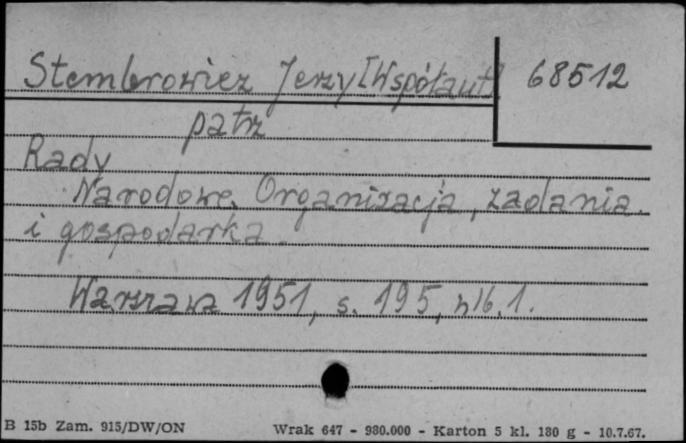 Stembrowicz Jerzy [Współaut.] 68512
patrz
Rady
Narodowe. Organizacja, zadania
i gospodarka.
Warszawa 1951, s. 195, nlb. 1.
B 15b Zam. 915/DW/ON Wrak 647 - 980.000 - Karton 5 kl. 180 g - 10.7.67.